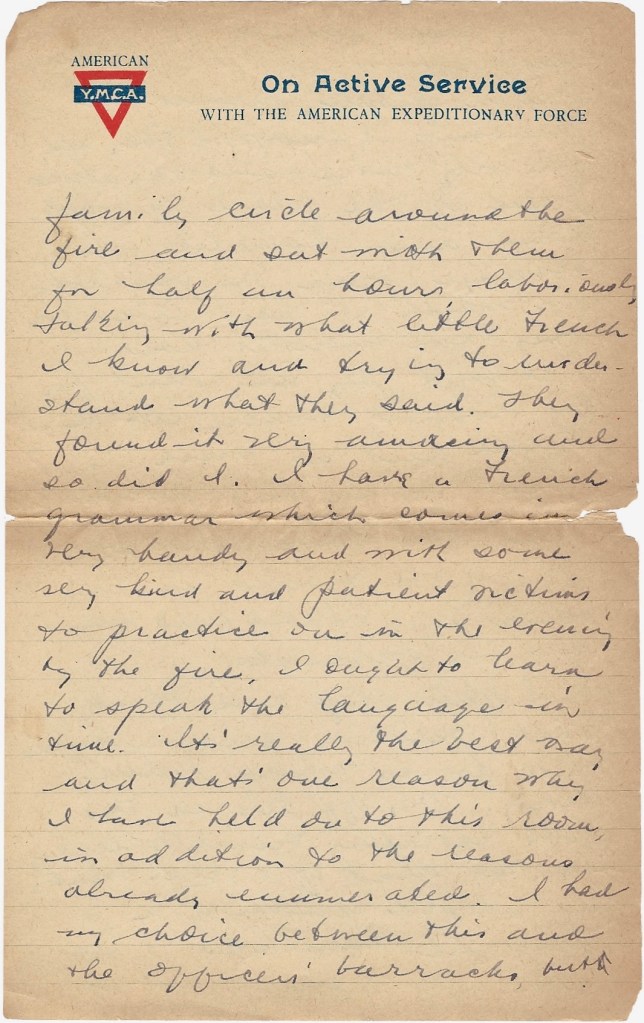 AMERICAN
Y.M.C.A.
On Active Service
WITH THE AMERICAN EXPEDITIONARY FORCE
family circle around the
fire and sat with them
for half an hour, laboriously
talking with what little French
I know and trying to under-
stand what they said. They
found it very amusing and
so did I. I have a French
grammar which comes in
very handy and with some
very kind and patient victims
to practice on in the evening
by the fire, I ought to learn
to speak the language in
time. It's really the best way
and that's one reason why
I have held on to this room,
in addition to the reasons
already enumerated. I had
my choice between this and
the officers' barracks, but